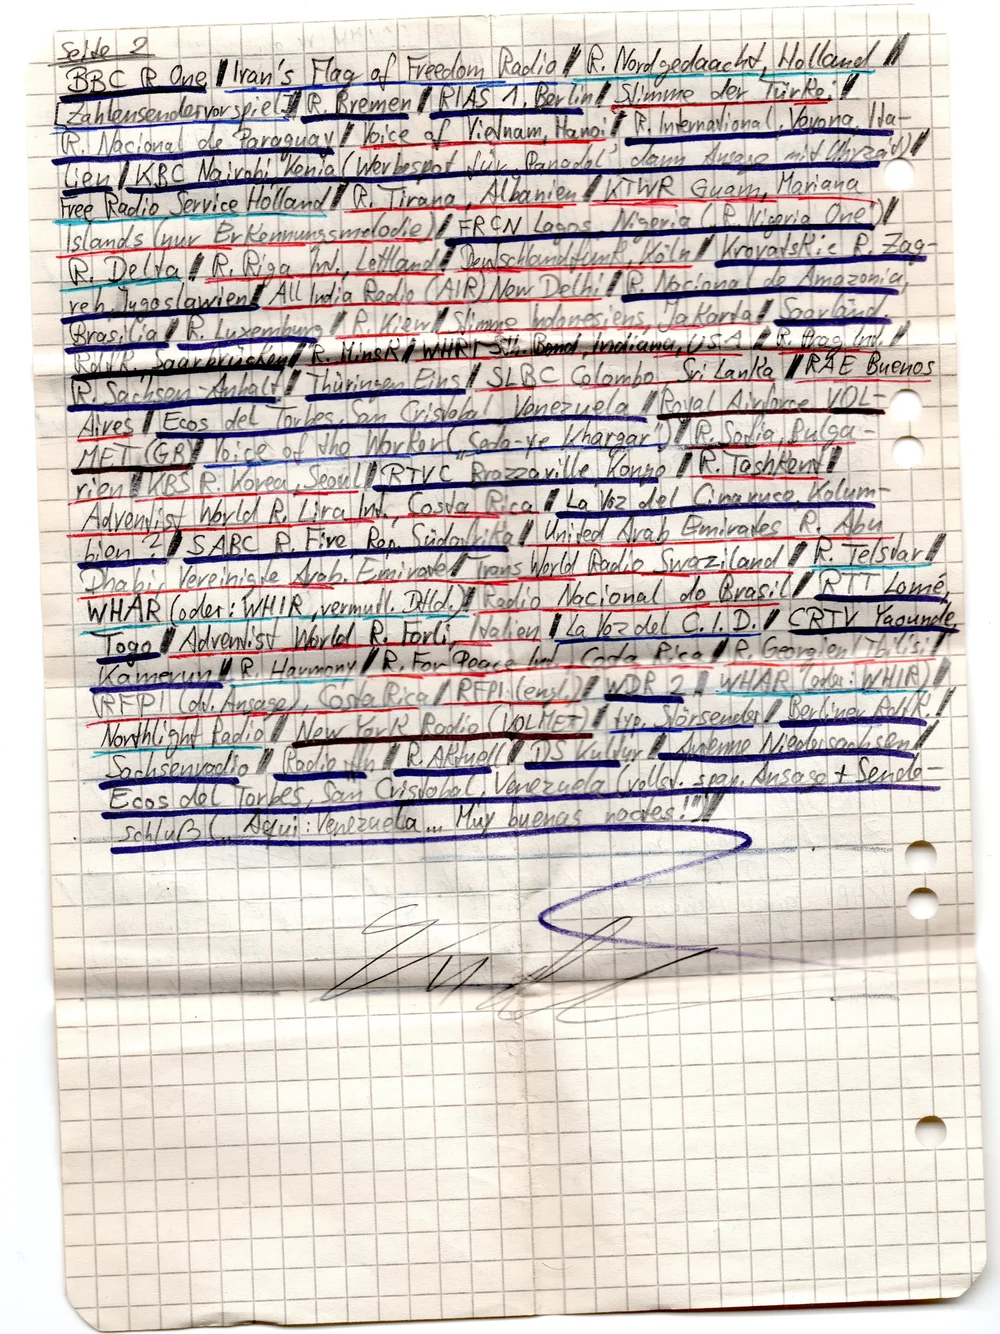 Seite 2
BBC R One / Iran's Flag of Freedom Radio / R. Nordgedaacht, Holland /
[Zahlensendervorspiel] / R. Bremen / RIAS 1, Berlin / Stimme der Türkei /
R. Nacional de Paraguay / Voice of Vietnam, Hanoi / R. International, Vayona, Ita-
lien / KBC Nairobi, Kenia (Werbespot für „Panadol" dann Ansage mit Uhrzeit) /
Free Radio Service Holland / R. Tirana, Albanien / KTWR Guam, Mariana
Islands (nur Erkennungsmelodie) / FRCN Lagos, Nigeria („R. Nigeria One") /
R. Delta / R. Riga Int., Lettland / Deutschlandfunk, Köln / Krovatskie R. Zag-
reb, Jugoslawien / All India Radio (AIR) New Delhi / R. Nacional do Amazonia,
Brasilia / R. Luxemburg / R. Kiew / Stimme Indonesiens, Jakarta / Saarländ.
Rdfk. Saarbrücken / R. Minsk / WHRI Sth. Bend, Indiana, USA / R. Prag Int. /
R. Sachsen-Anhalt / Thüringen Eins / SLBC Colombo, Sri Lanka / RAE Buenos
Aires / Ecos del Torbes, San Cristobal, Venezuela / Royal Airforce VOL-
MET (GB) / Voice of the Worker („Seda-ye Khargar") / R. Sofia, Bulga-
rien / KBS R. Korea, Seoul / RTVC Brazzaville, Kongo / R. Tashkent /
Adventist World R. Lira Int., Costa Rica / La Voz del Cinaruco, Kolum-
bien ? / SABC R. Five, Rep. Südafrika / United Arab Emirates R. Abu
Dhabi, Vereinigte Arab. Emirate / Trans World Radio Swaziland / R. Telstar /
WHAR (oder: WHIR, vermutl. Dtld.) / Radio Nacional do Brasil / RTT Lomé,
Togo / Adventist World R. Forli, Italien / La Voz del C.I.D. / CRTV Yaounde,
Kamerun / R. Harmony / R. For Peace Int., Costa Rica / R. Georgien, Tbilisi /
RFPI (dt. Ansage), Costa Rica / RFPI (engl.) / WDR 2 / WHAR (oder: WHIR) /
Northlight Radio / New York Radio (VOLMET) / typ. Störsender / Berliner Rdfk. /
Sachsenradio / Radio ffn / R. Aktuell / DS Kultur / Antenne Niedersachsen /
Ecos del Torbes, San Cristobal, Venezuela (vollst. span. Ansage + Sende-
schluß („...Aqui: Venezuela... Muy buenas noches!") /